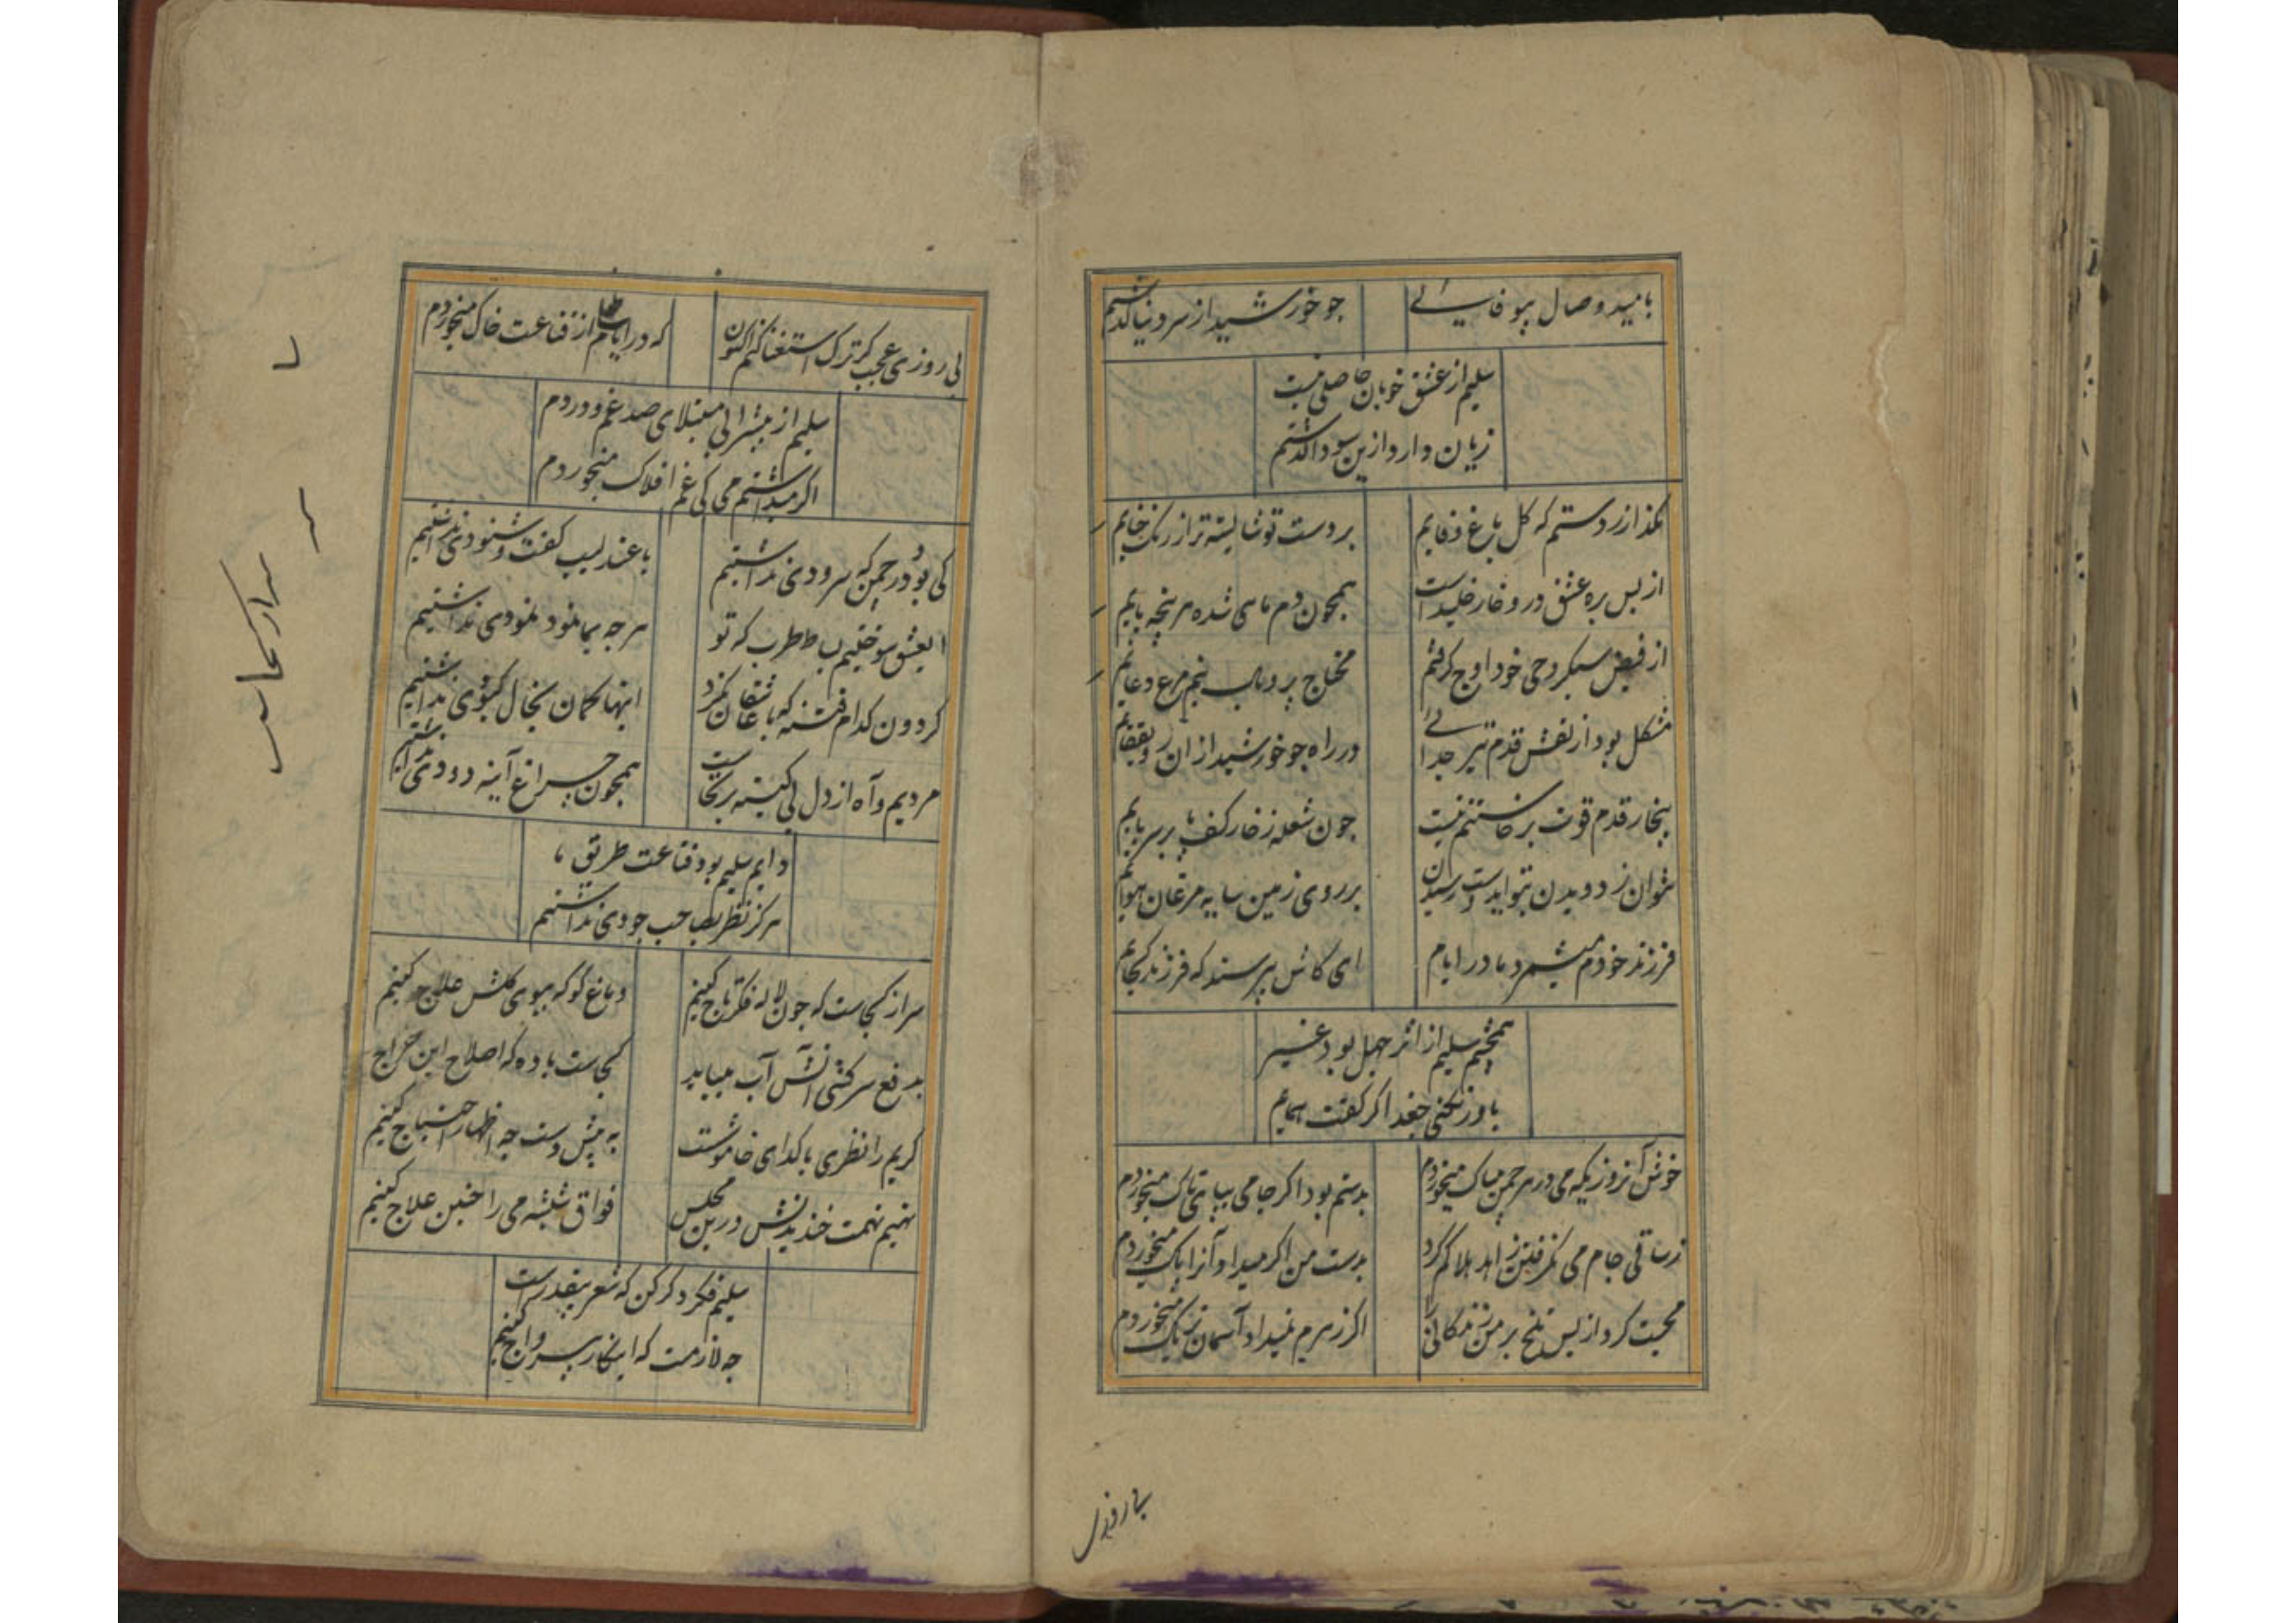 بامید وصال بیوفائی
چو خورشید از سر دنیا گذشتم
سلیم از عشق خوبان حاصلی نیست
زیان دارد ازین سودا گذشتم
مگذار ز دستم که گل باغ وفایم
بر دست تو شایسته تر از رنگ حنایم
از بس بره عشق درو خار خلیدست
همچون دم ماهی شده سرپنجه پایم
از فیض سبکروحی خود اوج گرفتم
محتاج پر و بال نیم مرغ دعایم
مشکل بود از نقش قدم تیر جدائی
در راه چو خورشید از آن رو بقفایم
بیخار قدم قوت برخاستنم نیست
چون شعله ز خار کف پا بر سر پایم
نتوان ز دویدن بتو ای دوست رسیدن
بر روی زمین سایه مرغان هوایم
فرزند خودم میشمرد مادر ایام
ای کاش بپرسند که فرزند کجایم
همچشم سلیم از اثر جهل بود غیر
باور نکنی جغد اگر گفت همایم
خوش آنروزیکه می در هر چمن بیباک میخوردم
بدستم بود اگر جامی بپای تاک میخوردم
ز ساقی جام می نگرفتن زاهد هلاکم کرد
بدست من اگر میداد آنرا پاک میخوردم
محبت کرد از بس تلخ بر من زندگانی را
اگر زهرم نمیداد آسمان تریاک میخوردم
پی روزی عجب گر ترک استغنا کنم اکنون
که در ایام طفلی از قناعت خاک میخوردم
سلیم از بیشرابی مبتلای صد غم و دردم
اگر میداشتم می کی غم افلاک میخوردم
کی بود در چمن که سرودی نداشتیم
با عندلیب گفت و شنودی نداشتیم
ای عشق سوختیم بساط طرب که تو
هرچه بما نمود نمودی نداشتیم
گردون کدام فتنه که با عاشقان نکرد
اینها گمان بخال کبودی نداشتیم
مردیم و آه از دل بی کینه برنخاست
همچون چراغ آینه دودی نداشتیم
دایم سلیم بود قناعت طریق ما
هرگز نظر بصاحب جودی نداشتیم
سر از کجاست که چون لاله فکر تاج کنیم
دماغ کو که ببوی گلش علاج کنیم
بدفع سرکشی آتش آب میباید
کجاست باده که اصلاح این مزاج کنیم
کریم را نظری با گدای خاموشست
به پیش دست چه اظهار احتیاج کنیم
نهیم تهمت خندیدنش درین مجلس
فواق شیشه می را چنین علاج کنیم
سلیم فکر دگر کن که شعر بیقدرست
چه لازمست که اینکار بیرواج کنیم